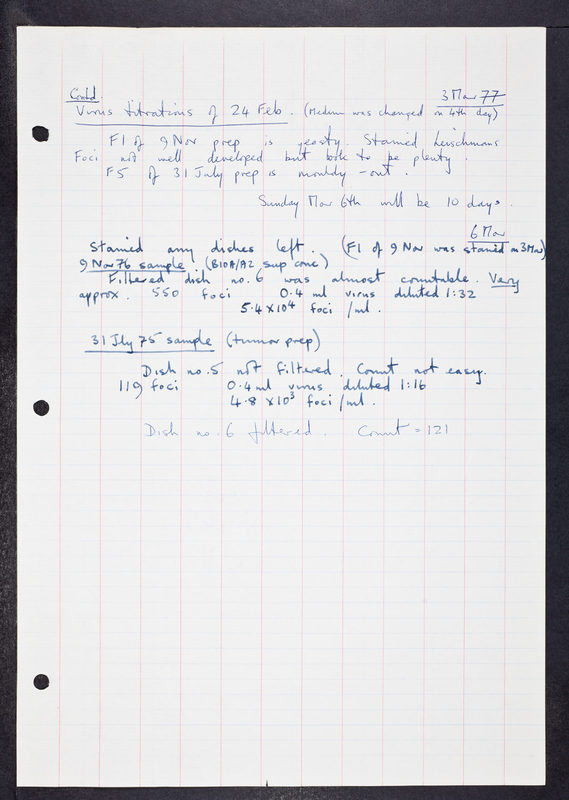 Contd.
3 Mar 77
Virus titrations of 24 Feb. (Medium was changed on 4th day)
F1 of 9 Nov prep is yeasty. Stained Leischmans
Foci not well developed but look to be plenty.
F5 of 31 July prep is mouldy - out.
Sunday Mar 6th will be 10 days.
6 Mar
Stained any dishes left. (F1 of 9 Nov was stained on 3 Mar)
9 Nov 76 sample (B10A/A2 sup conc)
Filtered dish no. 6 was almost countable. Very
approx. 550 foci 0.4 ml virus diluted 1:32
5.4 x 10⁴ foci/ml.
31 Jly 75 sample (tumor prep)
Dish no. 5 not filtered. Count not easy.
119 foci 0.4 ml virus diluted 1:16
4.8 x 10³ foci/ml.
Dish no. 6 filtered. Count = 121